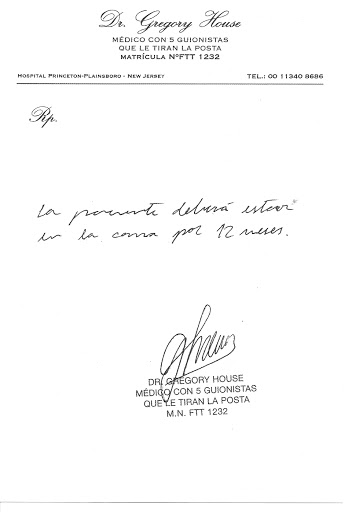 Dr. Gregory House
MÉDICO CON 5 GUIONISTAS
QUE LE TIRAN LA POSTA
MATRÍCULA NºFTT 1232
HOSPITAL PRINCETON-PLAINSBORO - NEW JERSEY TEL.: 00 11340 8686
Rp.
La paciente deberá estar
en la cama por 12 meses.
DR. GREGORY HOUSE
MÉDICO CON 5 GUIONISTAS
QUE LE TIRAN LA POSTA
M.N. FTT 1232